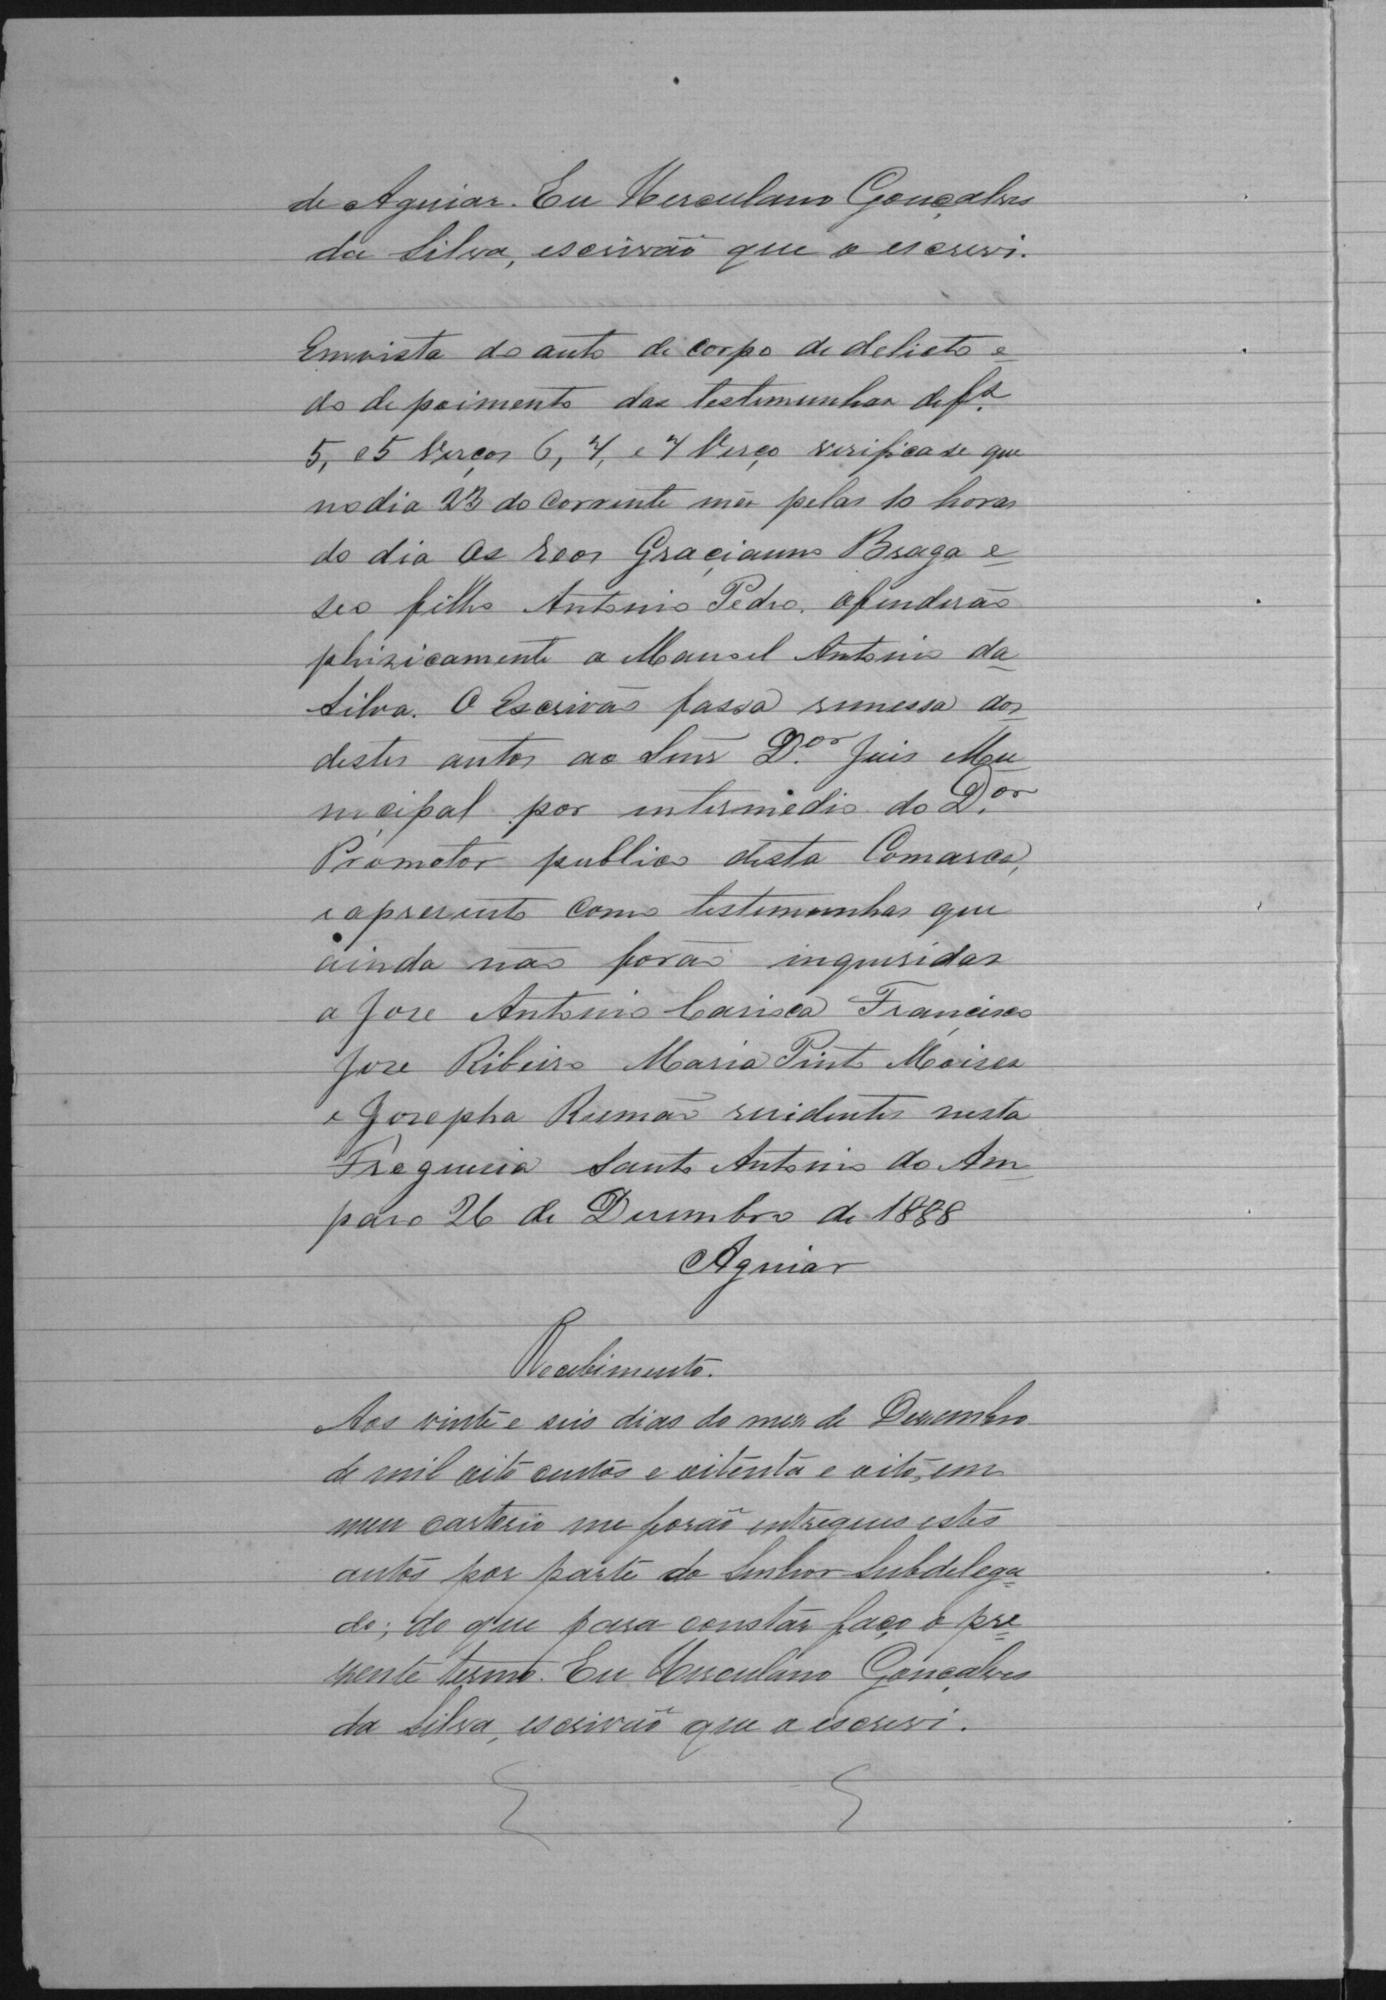 de Aguiar. Eu Herculano Gonçalves
da Silva, escrivão que o escrevi.
Emvista do auto de corpo de delicto e
do depoimento das testemunhas de fs.
5, e 5 Verços 6, 7, e 7 Verço verificase que
no dia 23 do corrente mês pelas 10 horas
do dia Os Reos Graçianno Braga e
seo filho Antonio Pedro. ofenderão
phizicamente a Manoel Antonio da
Silva. O Escrivão fassa remessa dos
destes autos ao Senr. D.or Juis Mu
nicipal por intermedio do D.or
Promotor publico desta Comarca,
e apresento como testemunhas que
ainda não forão inqueridas
a Jose Antonio Carioca Francisco
Jose Ribeiro Maria Pinto Moises
e Josepha Romão residentes nesta
Freguesia Santo Antonio do Am
paro 26 de Dezembro de 1888
Aguiar
Recebimento.
Aos vinte e seis dias do mez de Dezembro
de mil oito centos e oitenta e oito, em
meu cartorio me forão entregues estes
autos por parte do Senhor Subdelega
do; do que para constar faço o pre
zente termo. Eu Herculano Gonçalves
da Silva, escrivão que o escrevi.